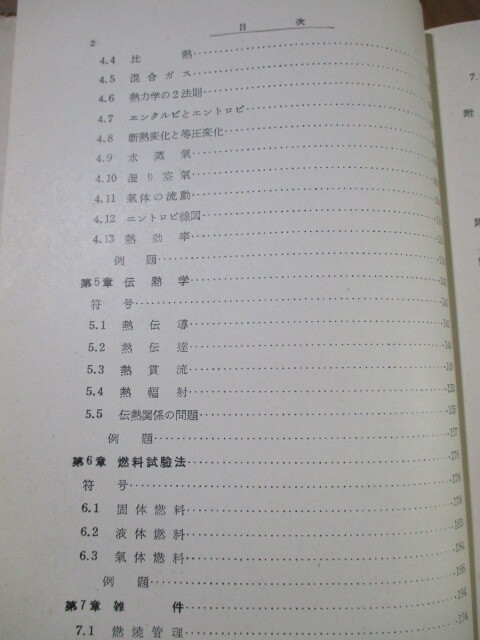 目次
2
4.4 比熱
4.5 混合ガス
4.6 熱力学の2法則
4.7 エンタルピとエントロピ
4.8 断熱変化と等圧変化
4.9 水蒸氣
4.10 湿り空氣
4.11 氣体の流動
4.12 エントロピ線図
4.13 熱効率
例題
第5章 伝熱学
符号
5.1 熱伝導
5.2 熱伝達
5.3 熱貫流
5.4 熱輻射
5.5 伝熱関係の問題
例題
第6章 燃料試驗法 178
符号 178
6.1 固体燃料 178
6.2 液体燃料
6.3 氣体燃料
例題
第7章 雑件 194
7.1 燃燒管理 194
7.
附